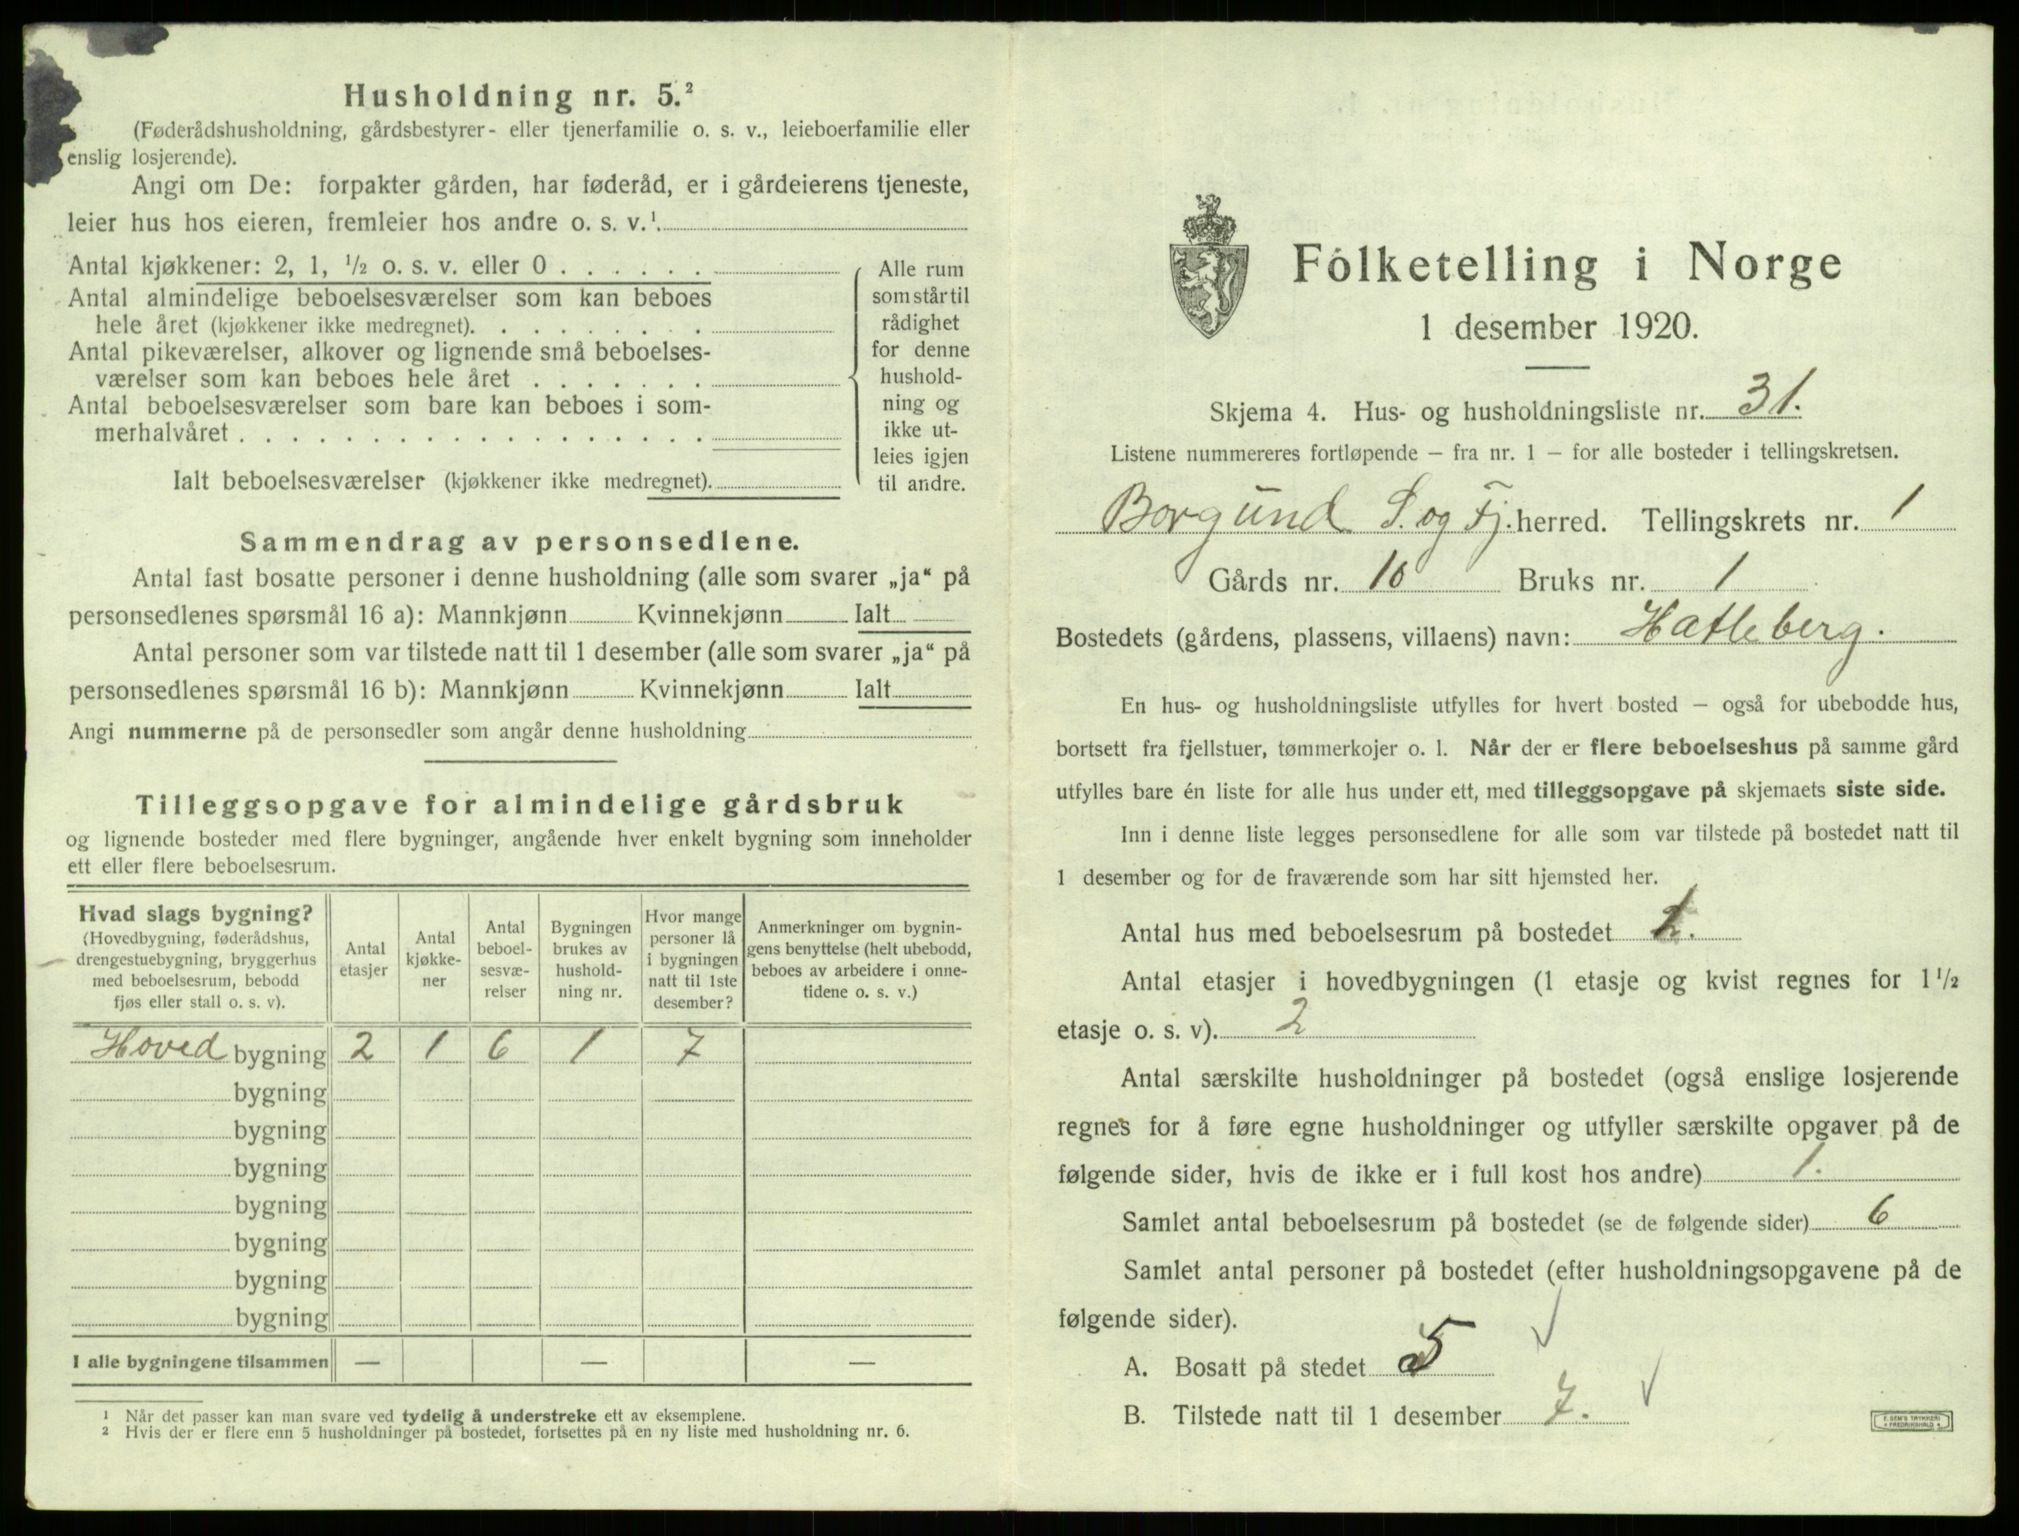 Husholdning nr. 5.²
(Føderådshusholdning, gårdsbestyrer- eller tjenerfamilie o. s. v., leieboerfamilie eller
enslig losjerende).
Angi om De: forpakter gården, har føderåd, er i gårdeierens tjeneste,
leier hus hos eieren, fremleier hos andre o. s. v.¹
Antal kjøkkener: 2, 1, ½ o. s. v. eller 0 . . . . . .
Antal almindelige beboelsesværelser som kan beboes
hele året (kjøkkener ikke medregnet). . . . . . . . .
Antal pikeværelser, alkover og lignende små beboelses-
værelser som kan beboes hele året . . . . . . .
Antal beboelsesværelser som bare kan beboes i som-
merhalvåret . . . . . . . . . . . . . . . . . .
Ialt beboelsesværelser (kjøkkener ikke medregnet).
Alle rum
som står til
rådighet
for denne
hushold-
ning og
ikke ut-
leies igjen
til andre.
Sammendrag av personsedlene.
Antal fast bosatte personer i denne husholdning (alle som svarer „ja“ på
personsedlenes spørsmål 16 a): Mannkjønn Kvinnekjønn Ialt
Antal personer som var tilstede natt til 1 desember (alle som svarer „ja“ på
personsedlenes spørsmål 16 b): Mannkjønn Kvinnekjønn Ialt
Angi nummerne på de personsedler som angår denne husholdning
Tilleggsopgave for almindelige gårdsbruk
og lignende bosteder med flere bygninger, angående hver enkelt bygning som inneholder
ett eller flere beboelsesrum.
Hvad slags bygning?
(Hovedbygning, føderådshus,
drengestuebygning, bryggerhus
med beboelsesrum, bebodd
fjøs eller stall o. s. v).
Antal
etasjer
Antal
kjøkke-
ner
Antal
beboel-
sesvæ-
relser
Bygningen
brukes av
hushold-
ning nr.
Hvor mange
personer lå
i bygningen
natt til 1ste
desember?
Anmerkninger om bygnin-
gens benyttelse (helt ubebodd,
beboes av arbeidere i onne-
tidene o. s. v.)
Hoved bygning 2 1 6 1 7
bygning
bygning
bygning
bygning
bygning
bygning
bygning
I alle bygningene tilsammen — — —
¹ Når det passer kan man svare ved tydelig å understreke ett av eksemplene.
² Hvis der er flere enn 5 husholdninger på bostedet, fortsettes på en ny liste med husholdning nr. 6.
Folketelling i Norge
1 desember 1920.
Skjema 4. Hus- og husholdningsliste nr. 31.
Listene nummereres fortløpende – fra nr. 1 – for alle bosteder i tellingskretsen.
Borgund S. og Fj. herred. Tellingskrets nr. 1
Gårds nr. 10 Bruks nr. 1
Bostedets (gårdens, plassens, villaens) navn: Hatleberg.
En hus- og husholdningsliste utfylles for hvert bosted – også for ubebodde hus,
bortsett fra fjellstuer, tømmerkojer o. l. Når der er flere beboelseshus på samme gård
utfylles bare én liste for alle hus under ett, med tilleggsopgave på skjemaets siste side.
Inn i denne liste legges personsedlene for alle som var tilstede på bostedet natt til
1 desember og for de fraværende som har sitt hjemsted her.
Antal hus med beboelsesrum på bostedet
Antal etasjer i hovedbygningen (1 etasje og kvist regnes for 1½
etasje o. s. v). 2
Antal særskilte husholdninger på bostedet (også enslige losjerende
regnes for å føre egne husholdninger og utfyller særskilte opgaver på de
følgende sider, hvis de ikke er i full kost hos andre) 1.
Samlet antal beboelsesrum på bostedet (se de følgende sider) 6
Samlet antal personer på bostedet (efter husholdningsopgavene på de
følgende sider).
A. Bosatt på stedet 5
B. Tilstede natt til 1 desember 7.
E. SEM'S TRYKKERI
FREDRIKSHALD